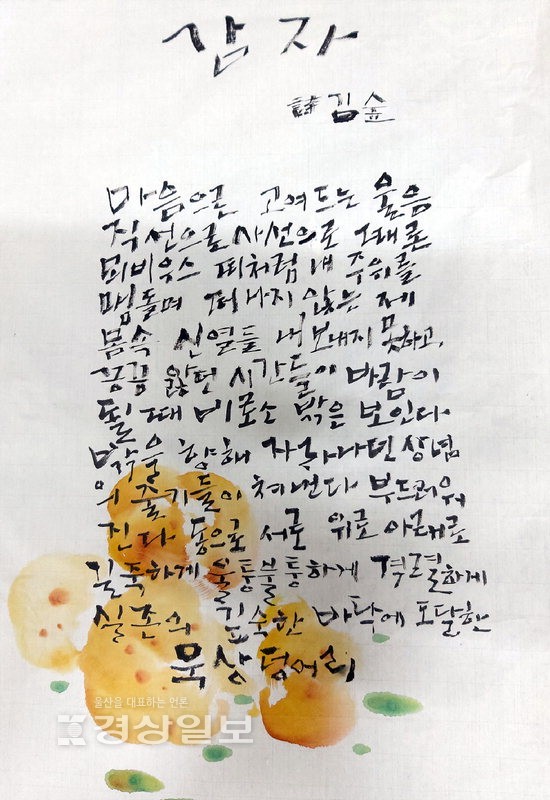 감자
詩 김숲
마음으로 고여드는 울음
직선으로 사선으로 때론
뫼비우스 띠처럼 내 주위를
맴돌며 떠나지 않는 제
몸속 신열들 내보내지 못하고,
끙끙 앓던 시간들이 바람이
될 때 비로소 밖은 보인다
밖을 향해 자라나던 상념
의 줄기들이 쳐낸다 부드러워
진다 동으로 서로 위로 아래로
길쭉하게 울퉁불퉁하게 격렬하게
실존의 깊숙한 바닥에 도달한
묵상 덩어리
울산을 대표하는 언론
경상일보